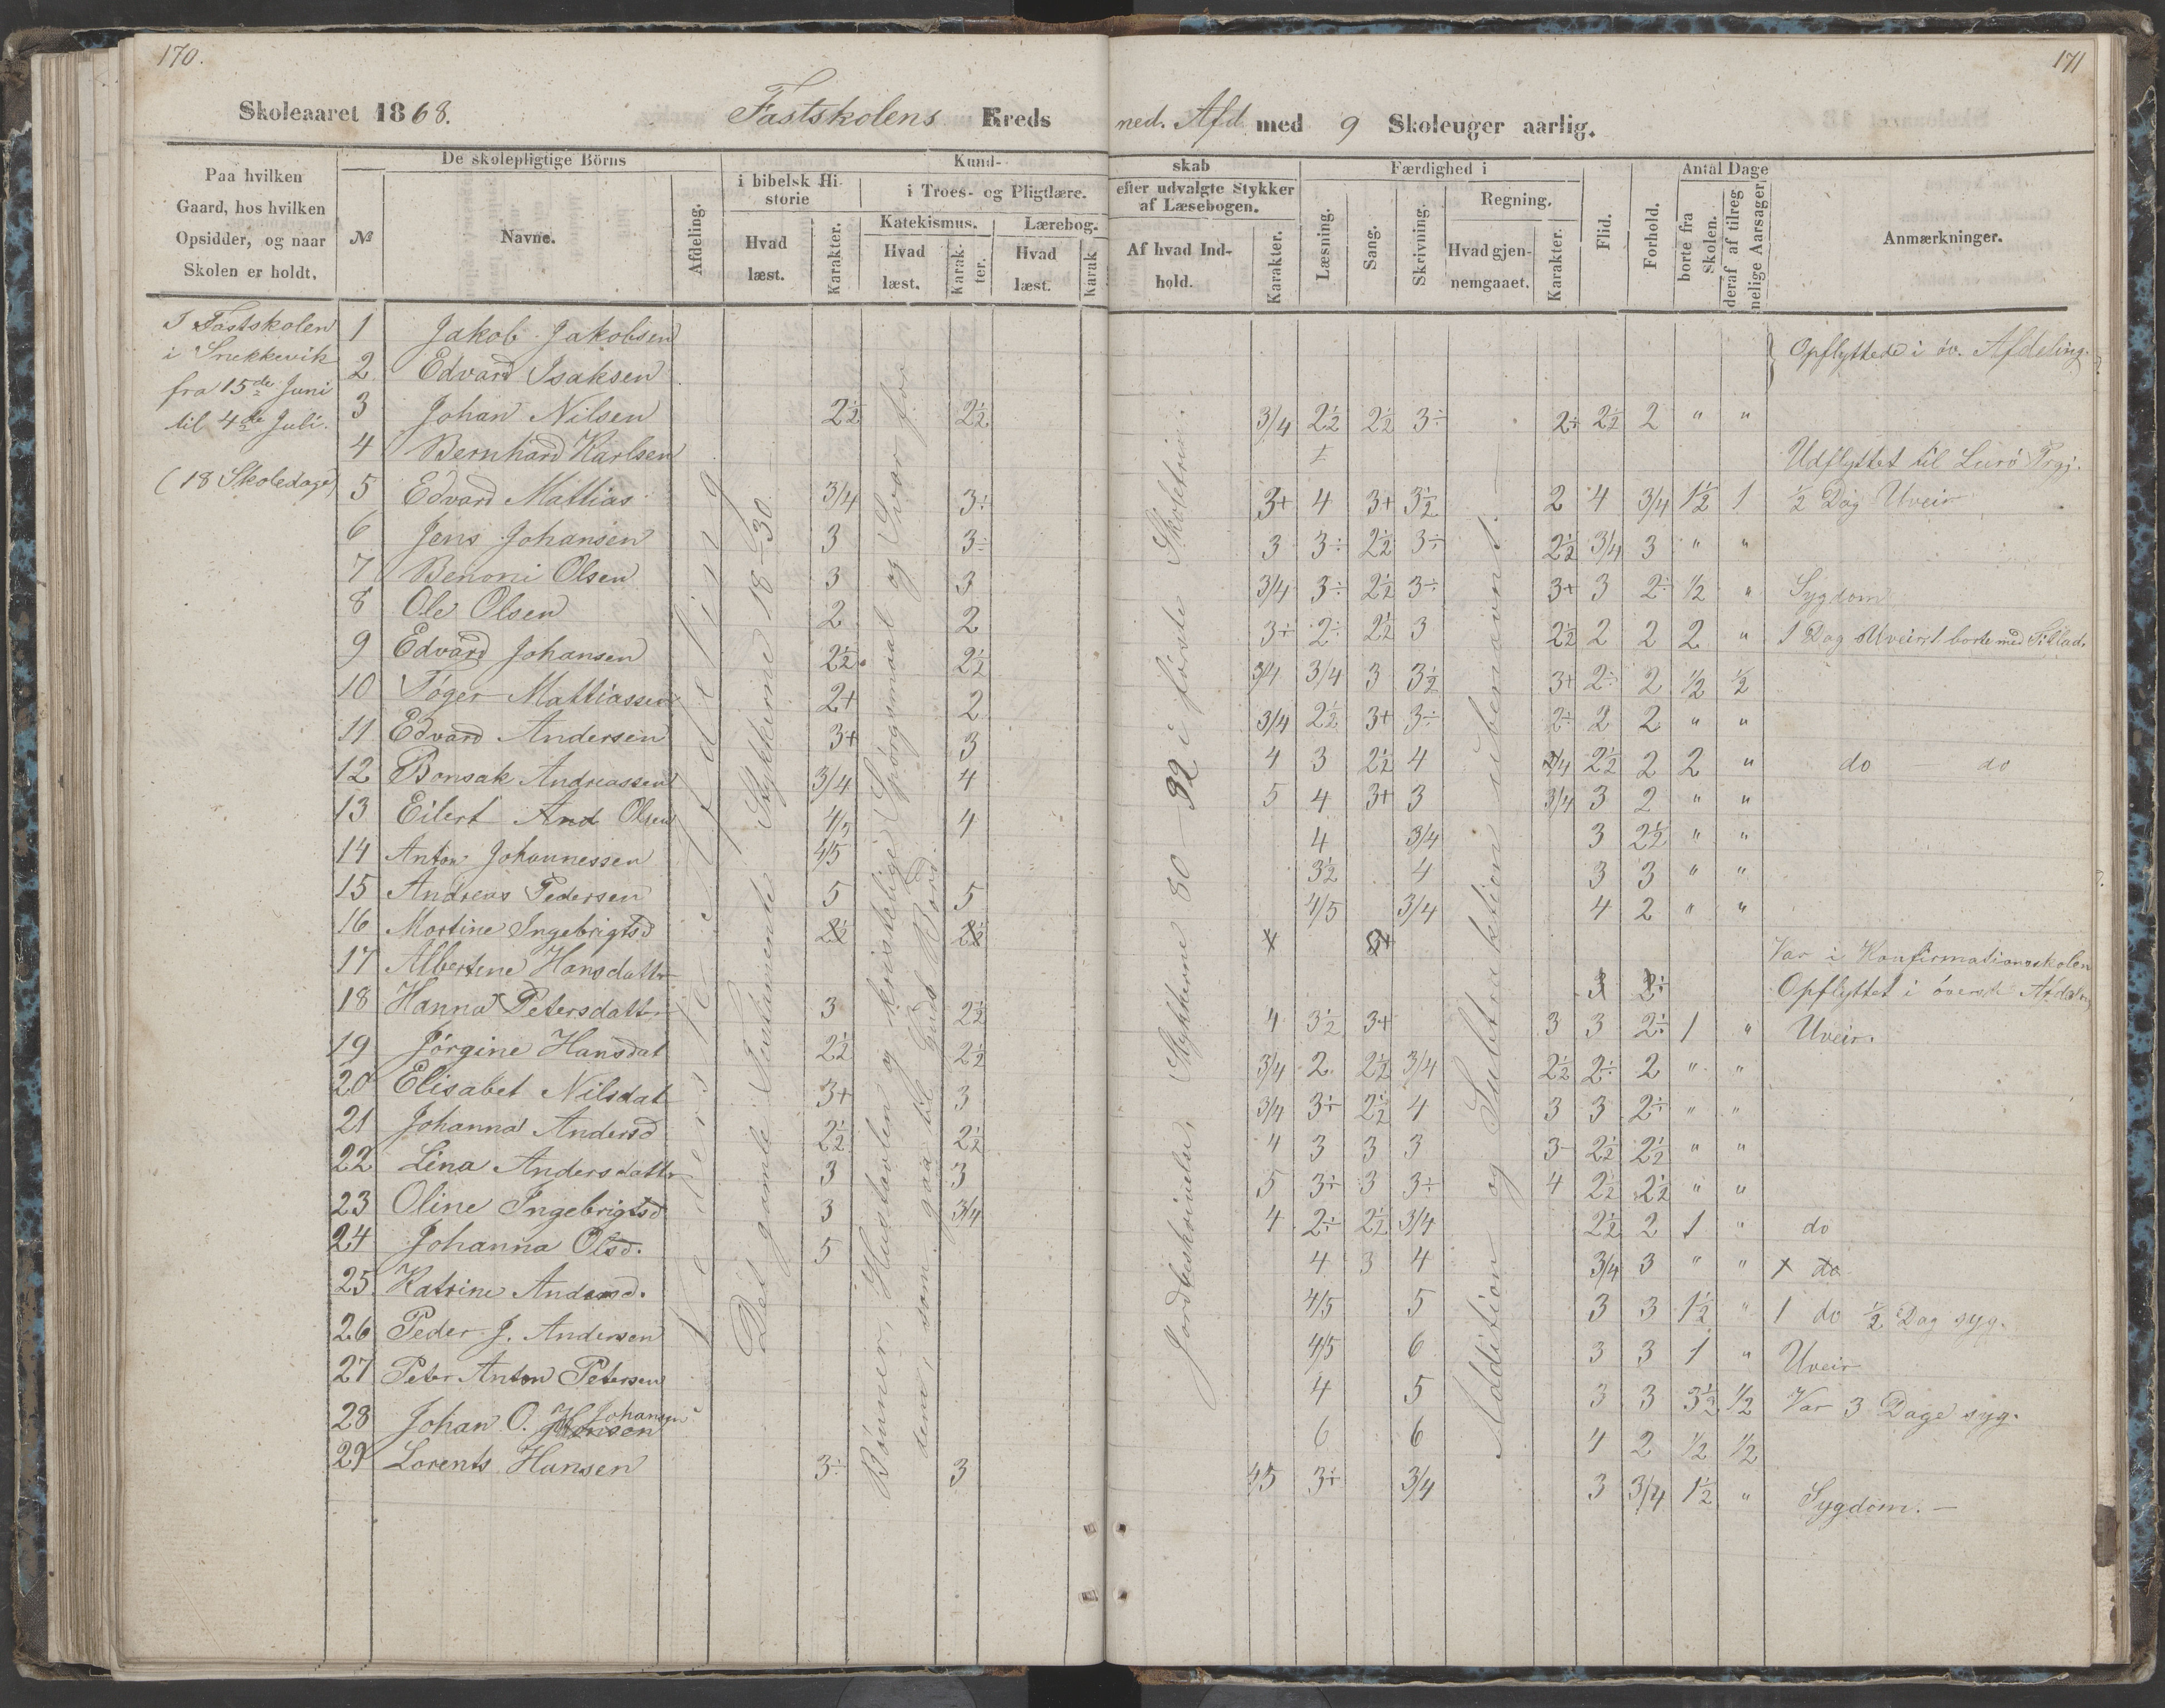 170.
171
Skoleaaret 1868. Fastskolens Kreds ned. Afd med 9 Skoleuger aarlig.
Paa hvilken Gaard, hos hvilken Opsidder, og naar Skolen er holdt.
De skolepligtige Börns
№
Navne.
Afdeling.
Kundskab
i bibelsk Historie
Hvad læst.
Karakter.
i Troes- og Pligtlære.
Katekismus.
Hvad læst.
Karakter.
Lærebog.
Hvad læst.
Karak
efter udvalgte Stykker af Læsebogen.
Af hvad Indhold.
Karakter.
Færdighed i
Læsning.
Sang.
Skrivning.
Regning.
Hvad gjennemgaaet.
Karakter.
Flid.
Forhold.
Antal Dage
borte fra Skolen.
deraf af tilregnelige Aarsager.
Anmærkninger.
I Fastskolen
i Snekkevik
fra 15de Juni
til 4de Juli.
(18 Skoledage)
Nederste Afdeling
Det gamle Testamente Stykkerne 18–30
Bønner, Hustavlen og kriskelige Spørgsmaal og Svar for
dem, som gaa til Guds Bord.
Jordbeskrivelse, Stykkerne 80–92 i første Skoletrin.
Addition og Subtraktion ubenævnt.
1 Jakob Jakobsen } Opflyttede i öv. Afdeling.
2 Edvard Isaksen
3 Johan Nilsen 2½ 2½ 3/4 2½ 2½ 3÷ 2÷ 2½ 2 " "
4 Bernhard Karlsen Udflyttet til Lurö Prgj.
5 Edvard Mattias 3/4 3÷ 3+ 4 3+ 3½ 2 4 3/4 1½ 1 ½ Dag Uveir
6 Jens Johansen 3 3÷ 3 3÷ 2½ 3÷ 2½ 3/4 3 " "
7 Benoni Olsen 3 3 3/4 3÷ 2½ 3÷ 3+ 3 2÷ ½ " Sygdom
8 Ole Olsen 2 2 3÷ 2÷ 2½ 3 2½ 2 2 2 " 1 Dag Uveir 1 borte med Tillad.
9 Edvard Johansen 2½ 2½ 3/4 3/4 3 3½ 3+ 2÷ 2 ½ ½
10 Tøger Mattiassen 2+ 2 3/4 2½ 3+ 3÷ 2÷ 2 2 " "
11 Edvard Andersen 3+ 3 4 3 2½ 4 3/4 2½ 2 2 " do – do
12 Bonsak Andreassen 3/4 4 5 4 3+ 3 3/4 3 2 " "
13 Eilert And Olsen 4/5 4 4 3/4 3 2½ " "
14 Anton Johannessen 4/5 3½ 4 3 3 " "
15 Andreas Pedersen 5 5 4/5 3/4 4 2 " "
16 Martine Ingebrigtsd 2½ 2½ 4 3+ Var i Konfirmationsskolen
17 Albertine Hansdattr 3 2÷ Opflyttet i överste Afdeling
18 Hanna Petersdatt. 3 2½ 4 3½ 3+ 3 3 2÷ 1 " Uveir.
19 Jörgine Hansdat 2½ 2½ 3/4 2 2½ 3/4 2½ 2÷ 2 " "
20 Elisabet Nilsdat 3+ 3 3/4 3÷ 2½ 4 3 3 2÷ " "
21 Johanna Andersd 2½ 2½ 4 3 3 3 3– 2½ 2½ " "
22 Lina Andersdattr 3 3 5 3÷ 3 3÷ 4 2½ 2½ " "
23 Oline Ingebrigtsd 3 3/4 4 2÷ 2½ 3/4 2½ 2 1 " do
24 Johanna Olsd. 5 4 3 4 3/4 3 " " 1 do
25 Katrine Andersd. 4/5 5 3 3 1½ " 1 do ½ Dag syg.
26 Peder J. Andersen 4/5 6 3 3 1 " Uveir
27 Peter Anton Petersen 4 5 3 3 3½ ½ Var 3 Dage syg.
28 Johan O. Johansen 6 6 4 2 ½ ½
29 Lorents Hansen 3÷ 3 4/5 3÷ 3/4 3 3/4 1½ " Sygdom. –